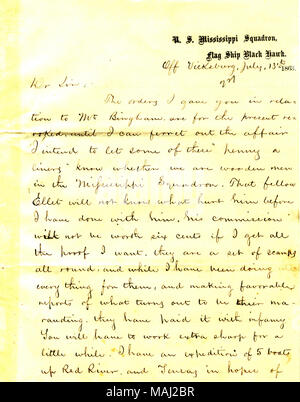 U. S. Mississippi Squadron,
Flag Ship Black Hawk.
Off Vicksburg, July, 13th 1863
Dr Sir,
The orders I gave you in rela-
tion to Mr Bingham, are for the present re
voked, until I can ferret out the affair
I intend to let some of these "penny a
liners" know whether we are wooden men
in the Mississippi Squadron. That fellow
Ellet will not know what hurt him before
I have done with him, his commission
will not be worth six cents if I get all
the proof I want, they are a set of scamps
all round, and while I have been doing
every thing for them, and making favorable
reports of what turns out to be their ma-
rauding, they have paid it with infamy
You will have to work extra sharp for a
little while. I have an expedition of 5 boats
up Red River, and Tensas in hopes of
alamy
Image ID: MAJ2BR
www.alamy.com